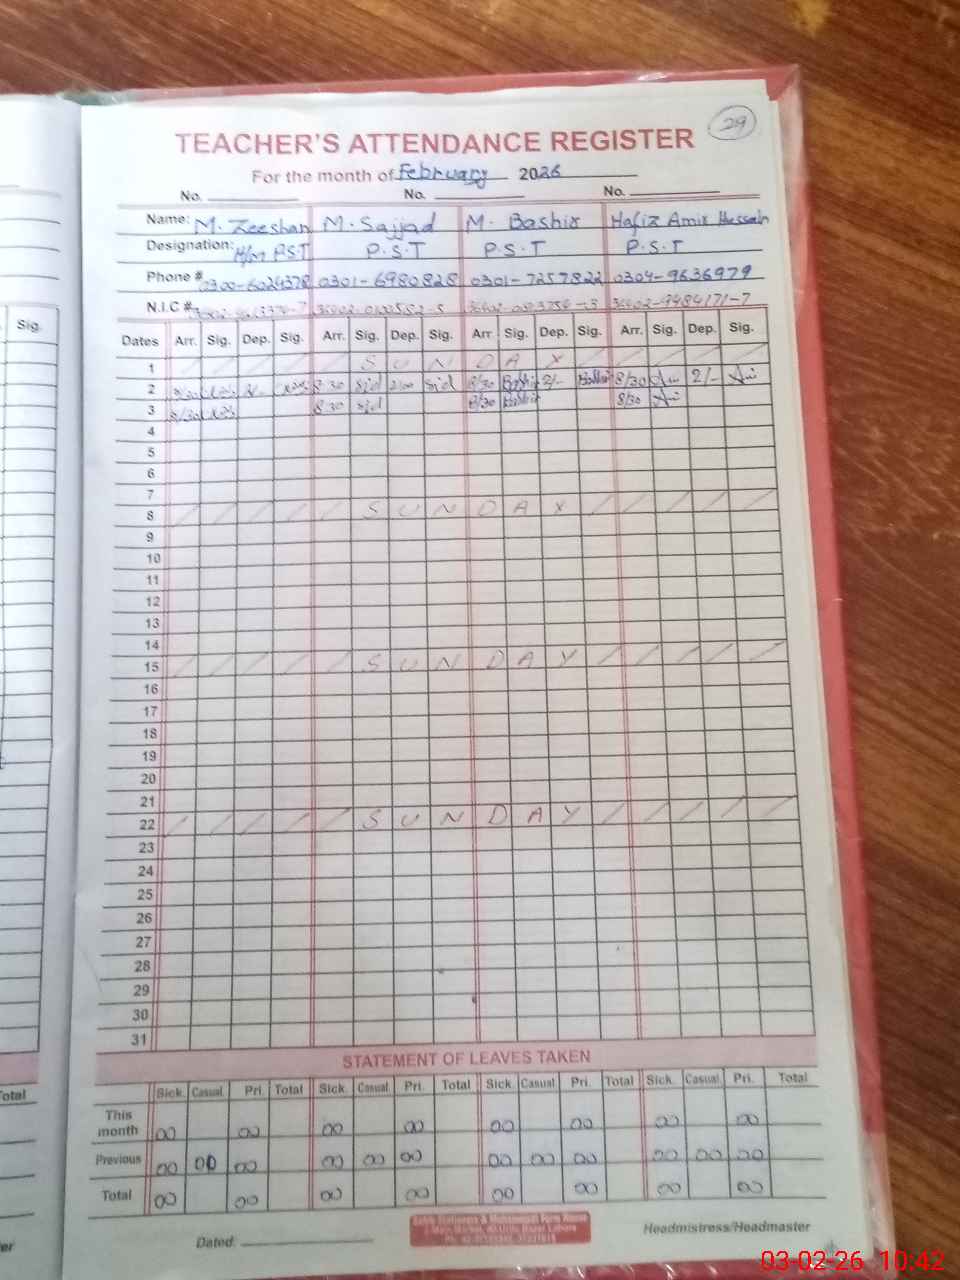 29
TEACHER'S ATTENDANCE REGISTER
For the month of February 2026
No. No. No.
Name: M. Zeeshan M. Sajjad M. Bashir Hafiz Amir Hussain
Designation: H/M P.S.T P.S.T P.S.T P.S.T
Phone # 0300-6024378 0301-6980828 0301-7257822 0304-9636979
N.I.C #
Sig. Dates Arr. Sig. Dep. Sig. Arr. Sig. Dep. Sig. Arr Sig. Dep. Sig. Arr. Sig. Dep. Sig.
1 S U N D A Y
2 8/30 2/- 8 30 Sjd 2/00 Sjd 8/30 Bashir 2/- Bashir 8/30 2/-
3 8/30 8 30 Sjd 8/30 Bashir 8/30
4
5
6
7
8 S U N D A Y
9
10
11
12
13
14
15 S U N D A Y
16
17
18
19
20
21
22 S U N D A Y
23
24
25
26
27
28
29
30
31
STATEMENT OF LEAVES TAKEN
Total Sick. Casual Pri. Total Sick. Casual Pri. Total Sick. Casual Pri. Total Sick. Casual Pri. Total
This month 00 00 00 00 00 00 00 00
Previous 00 00 00 00 00 00 00 00 00 00 00 00
Total 00 00 00 00 00 00 00 00
Dated: Headmistress/Headmaster
03-02-26 10:42